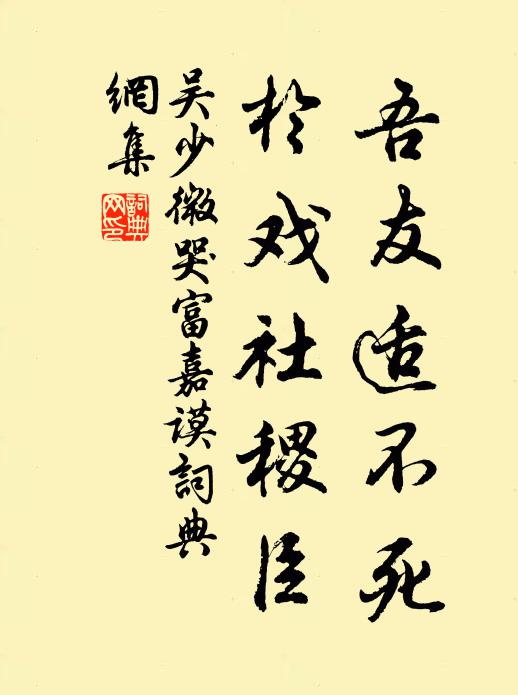 吾友适不死
於戏社稷臣
吴少微哭富嘉谟詞典
網集
詞典网印